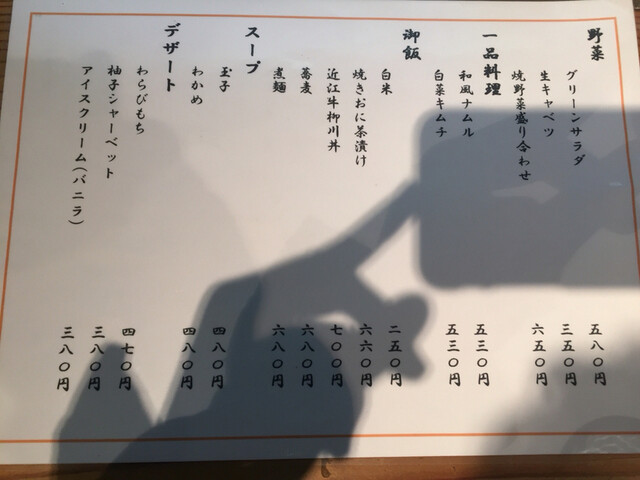 野菜
グリーンサラダ 五八〇円
生キャベツ 三五〇円
焼野菜盛り合わせ 六五〇円
一品料理
和風ナムル 五三〇円
白菜キムチ 五三〇円
御飯
白米 二五〇円
焼きおに茶漬け 六六〇円
近江牛柳川丼 七〇〇円
蕎麦 六八〇円
煮麺 六八〇円
スープ
玉子 四八〇円
わかめ 四八〇円
デザート
わらびもち 四七〇円
柚子シャーベット 三八〇円
アイスクリーム(バニラ) 三八〇円